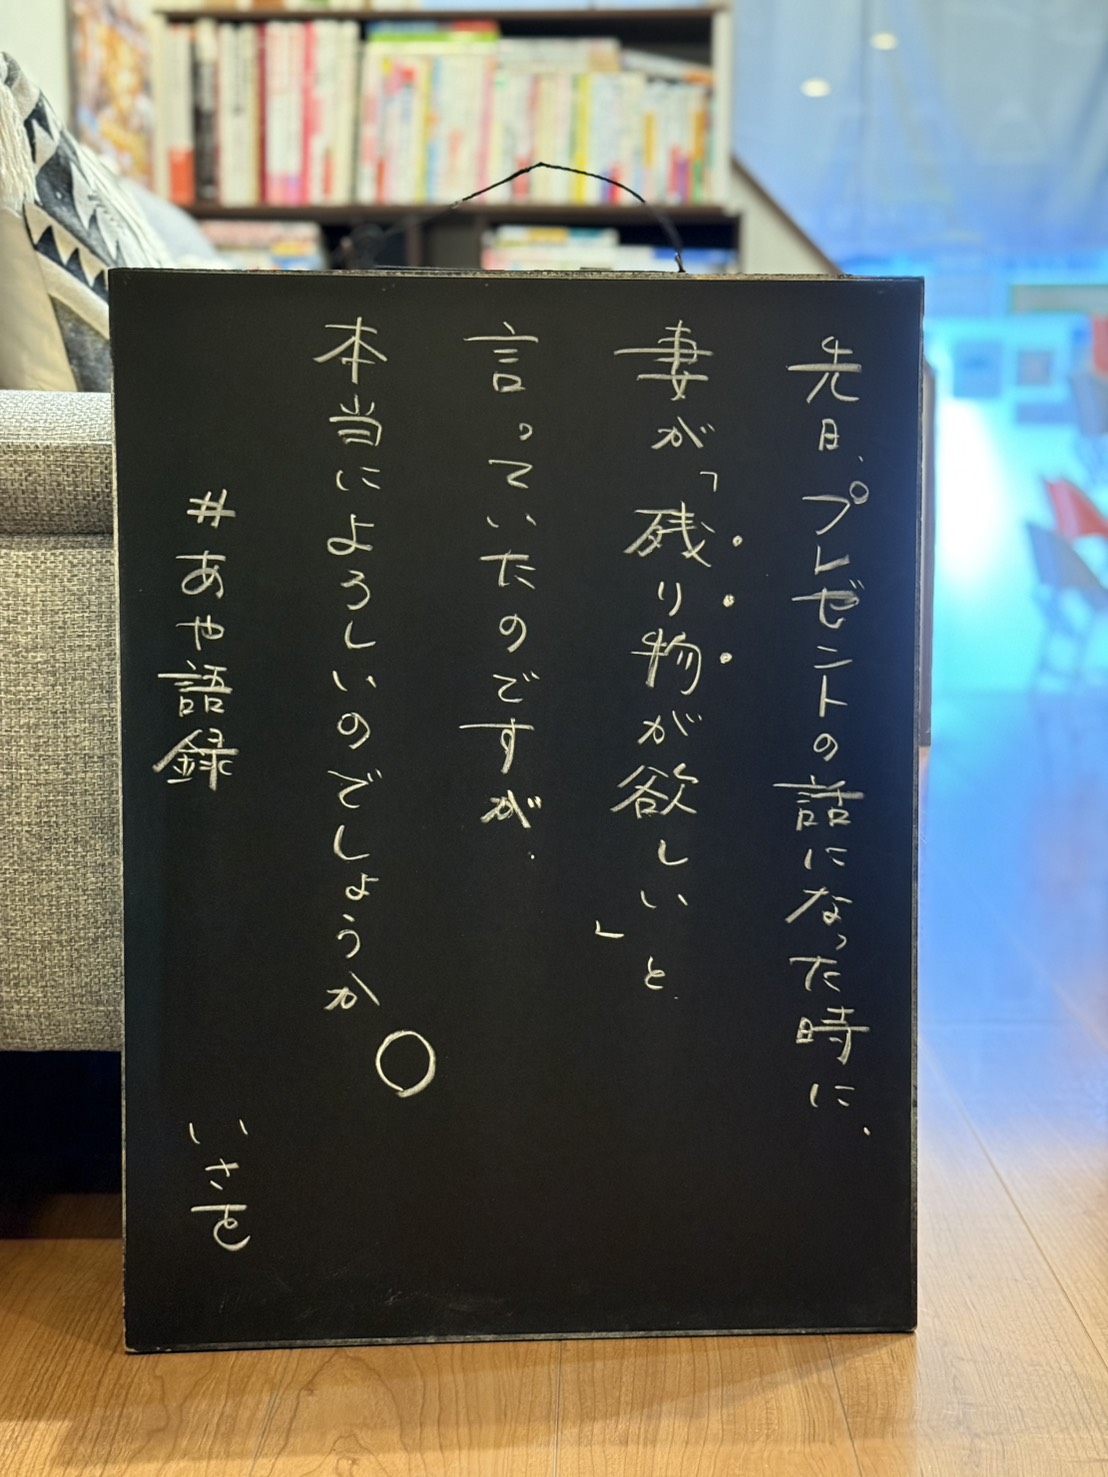 先日、プレゼントの話になった時に、
妻が「残り物が欲しい」と
言っていたのですが、
本当によろしいのでしょうか○
#あや語録
いさを